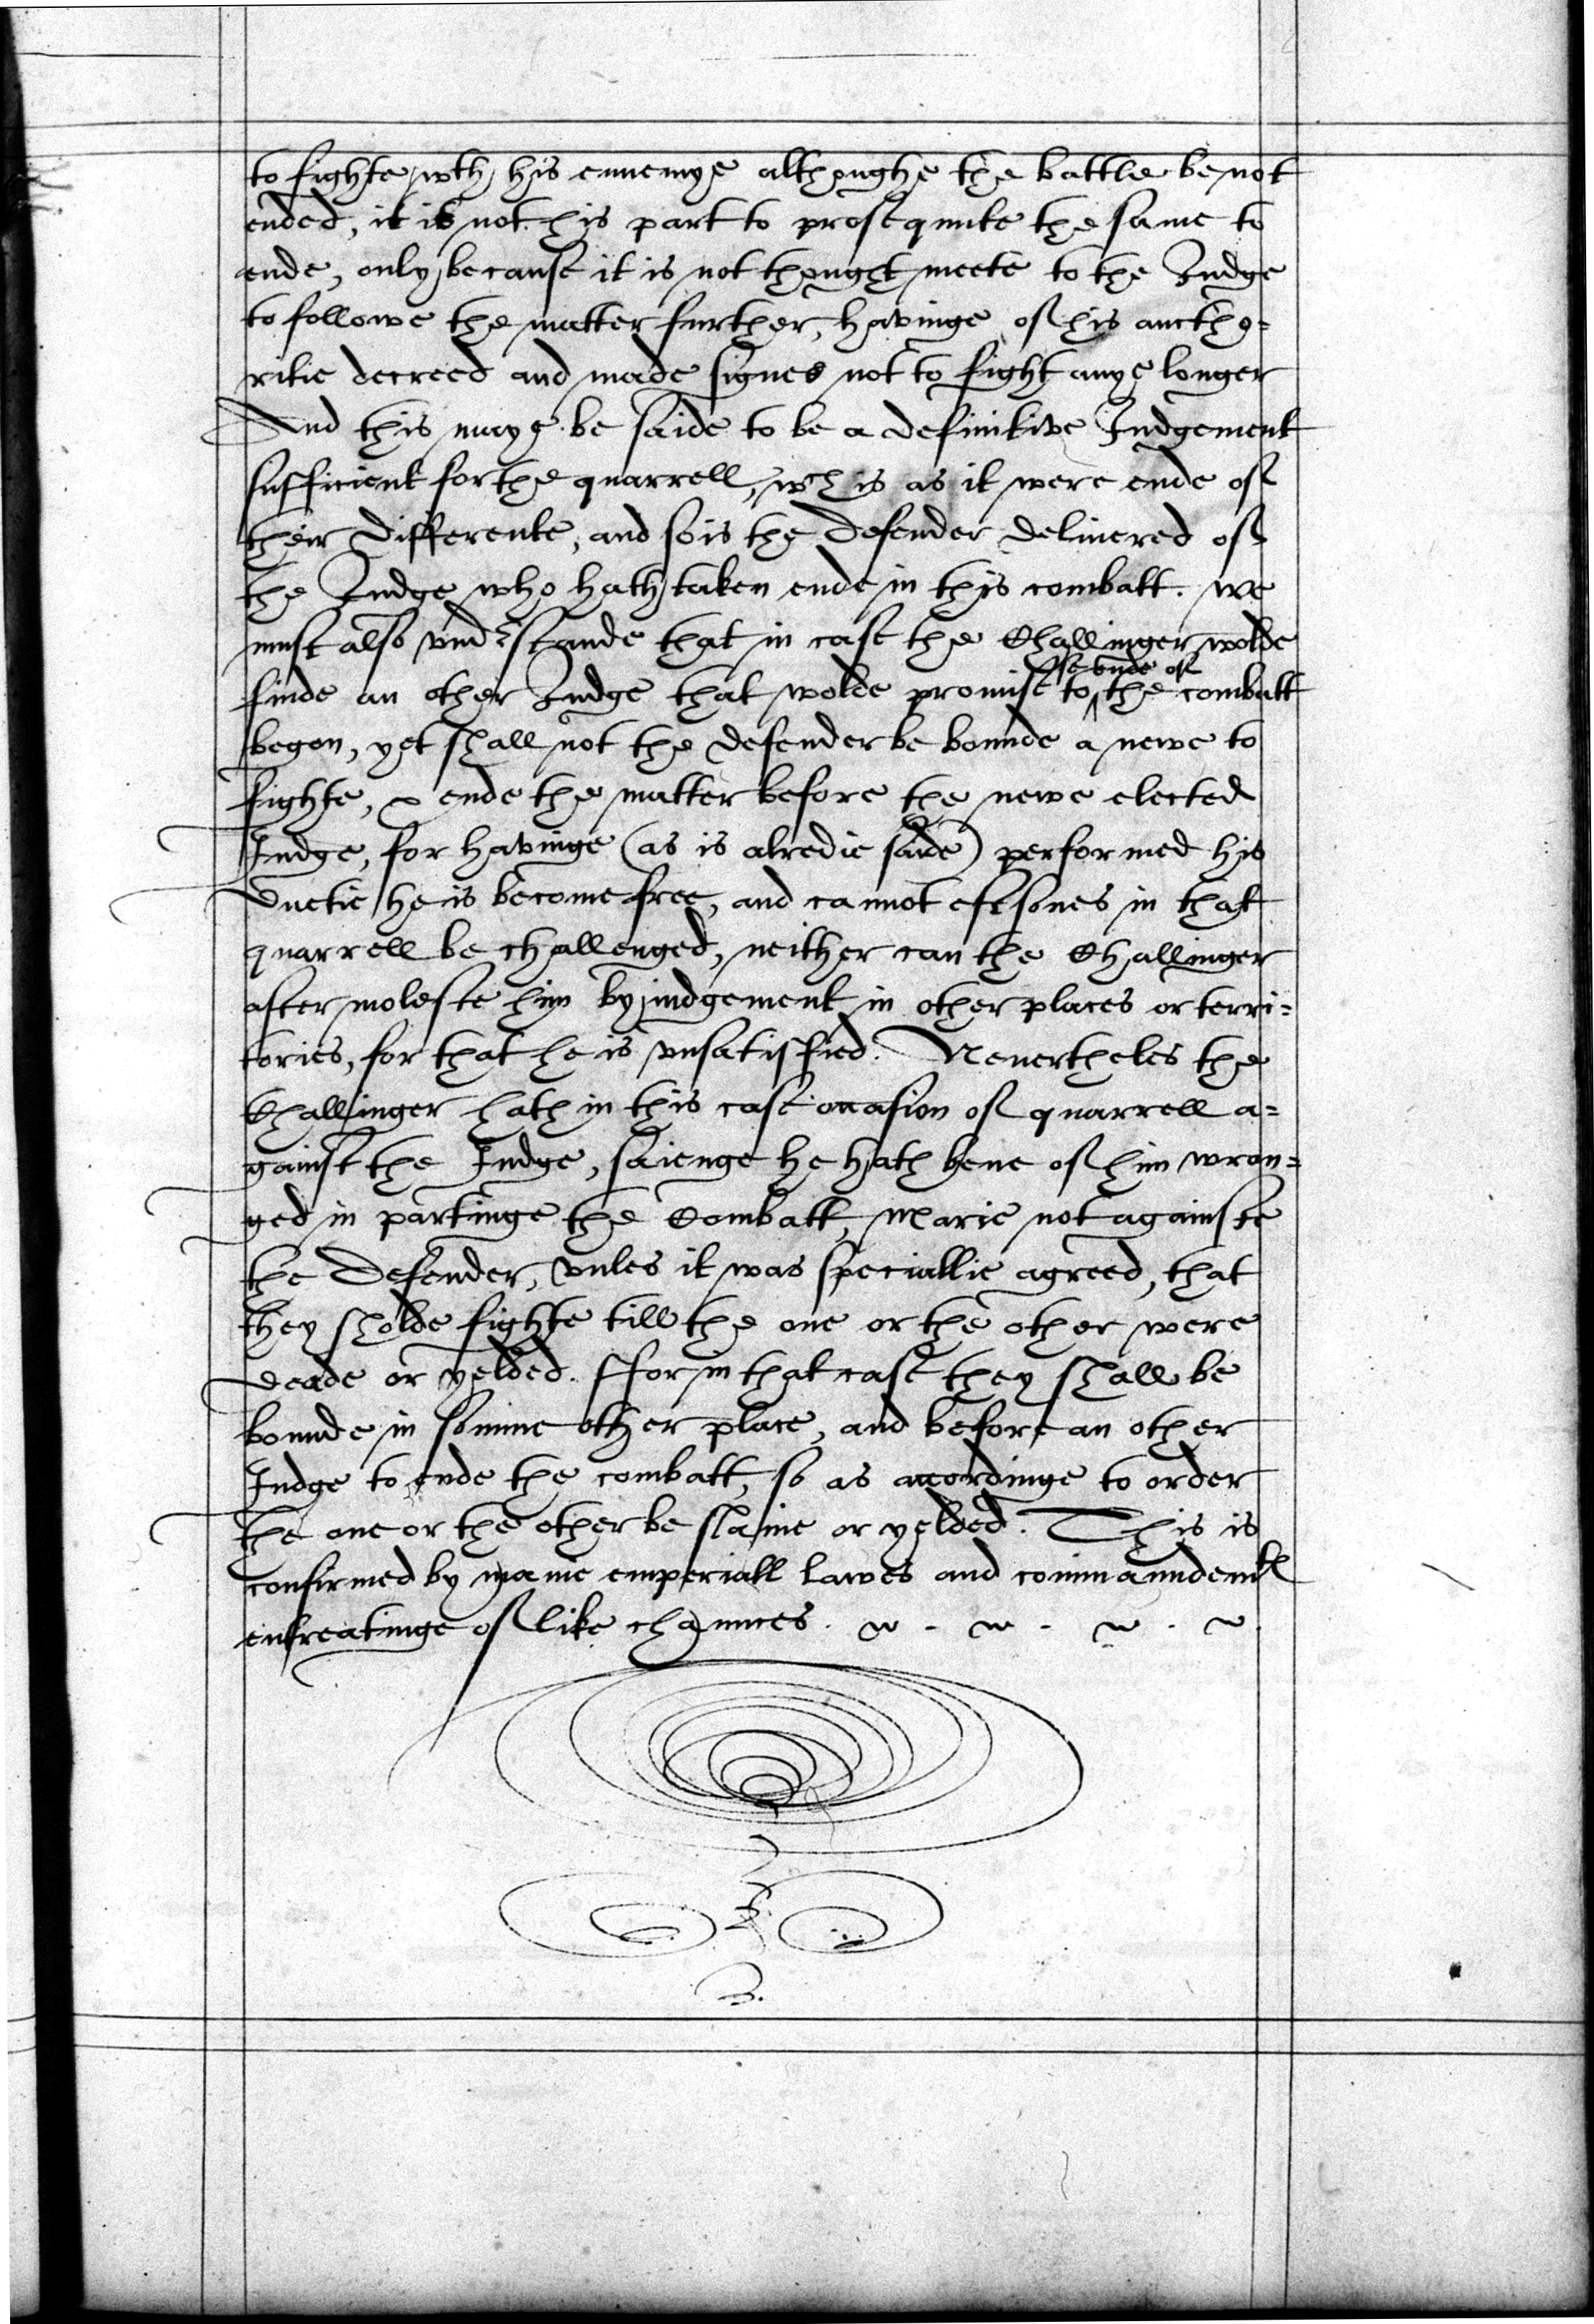 to fighte wth his ennemye althoughe the battle be not
ended, it is not his part to prosequute the same to
ende, only because it is not thought meete to the Iudge
to followe the matter further, havinge of his auctho=
ritie decreed and made signes not to fight anye longer
And this maye be saide to be a definitive Iudgement
sufficient for the quarrell, wch is as it were ende of
their differente, and so is the defender delivered of
the Iudge who hath taken ende in this combatt. we
must also vnderstande that in case the Challinger wolde
finde an other Iudge that wolde promise to the ende of the combatt
begon, yet shall not the defender be bounde a newe to
fighte, & ende the matter before the newe elected
Iudge, for havinge (as is alredie saide) performed his
duetie he is become free, and cannot eftsones in that
quarrell be challenged, neither can the Challinger
after moleste him by iudgement in other places or terri=
tories, for that he is vnsatisfied. Neuertheles the
Challinger hath in this case occasion of quarrell a=
gainst the Iudge, saienge he hath bene of him wron=
ged in partinge the Combatt, Marie not againste
the Defender, vnles it was speciallie agreed, that
they sholde fighte till the one or the other were
deade or yelded. ffor in that case they shall be
bounde in somme other place, and before an other
Iudge to ende the combatt, so as accordinge to order
the one or the other be slaine or yelded. This is
confirmed by manie emperiall lawes and commaundemts
entreatinge of like chaunces.